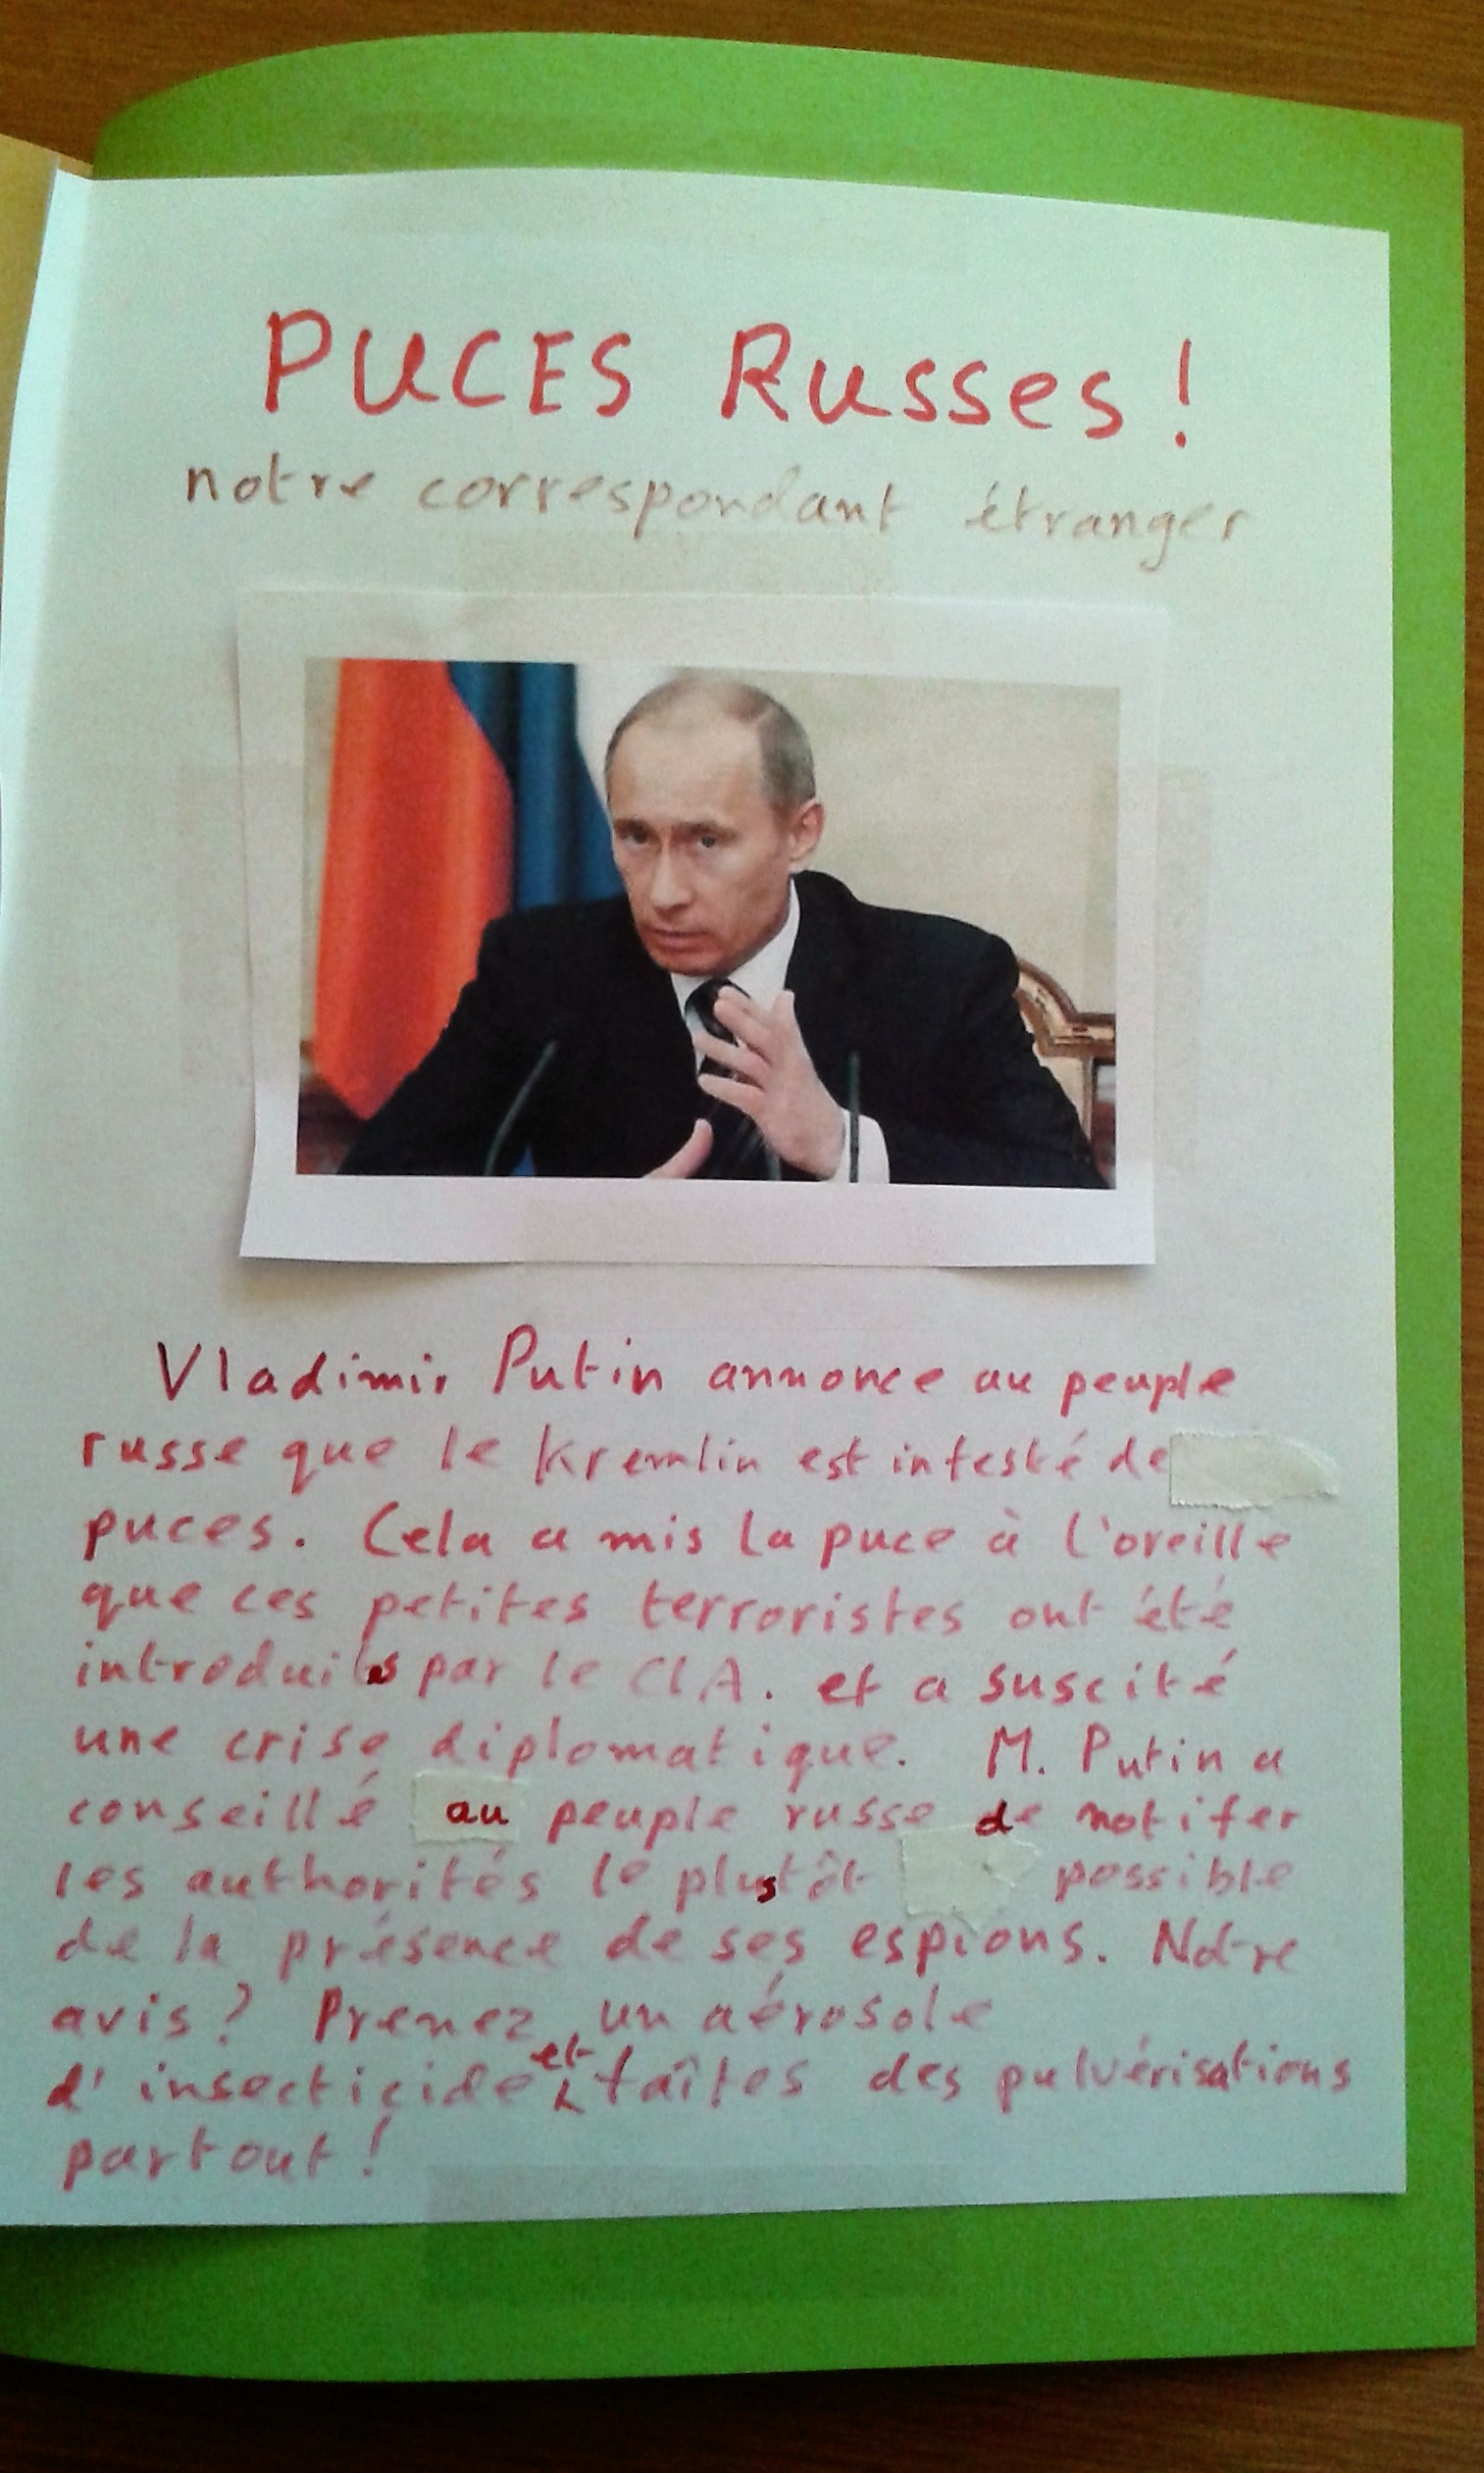 PUCES Russes!
notre correspondant étranger
Vladimir Putin annonce au peuple
russe que le Kremlin est infesté de
puces. Cela a mis la puce à l'oreille
que ces petites terroristes ont été
introduites par le CIA. et a suscité
une crise diplomatique. M. Putin a
conseillé au peuple russe de notifer
les authorités le plustôt possible
de la présence de ses espions. Notre
avis? Prenez un aérosole
d'insecticide et faîtes des pulvérisations
partout!